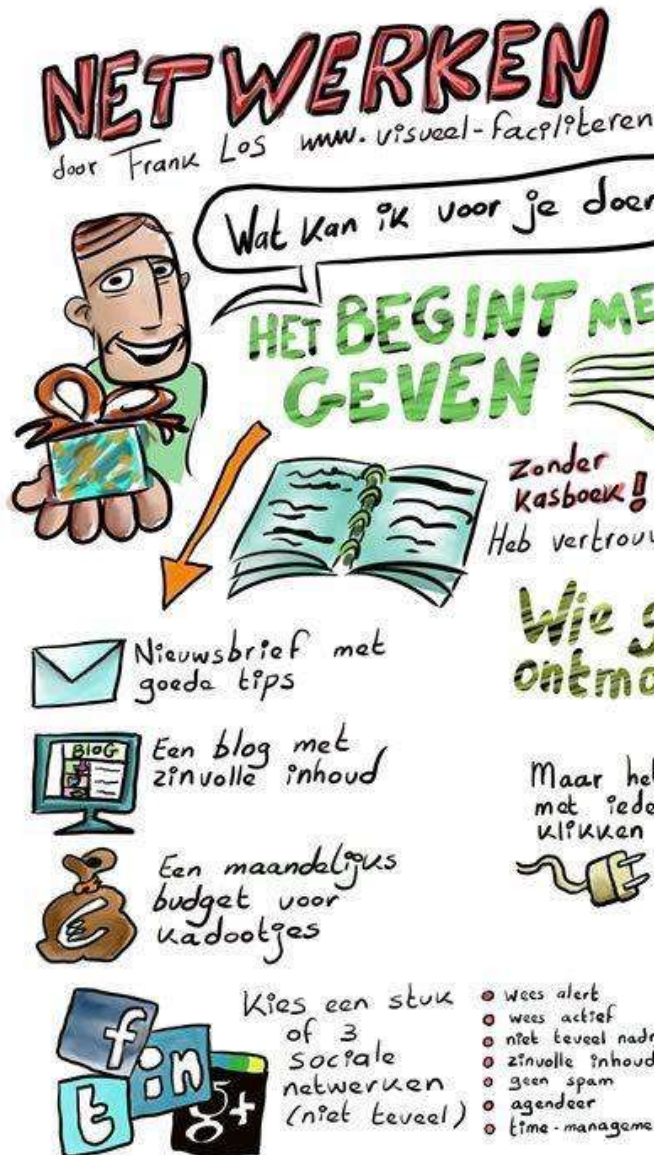 NETWERKEN
door Frank Los www.visueel-faciliteren
Wat kan ik voor je doen
HET BEGINT ME
GEVEN
Zonder
kasboek!
Heb vertrouw
Wie g
ontmo
Nieuwsbrief met
goede tips
BLOG
Een blog met
zinvolle inhoud
Maar het
met iede
klikken
Een maandelijks
budget voor
kadootjes
€
f
in
t
g+
Kies een stuk
of 3
sociale
netwerken
(niet teveel)
wees alert
wees actief
niet teveel nadr
zinvolle inhoud
geen spam
agendeer
time-manageme